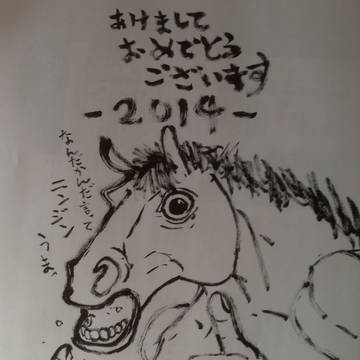 あけまして
おめでとう
ございます
-2014-
なんだかんだ言って
ニンジン
うまっ